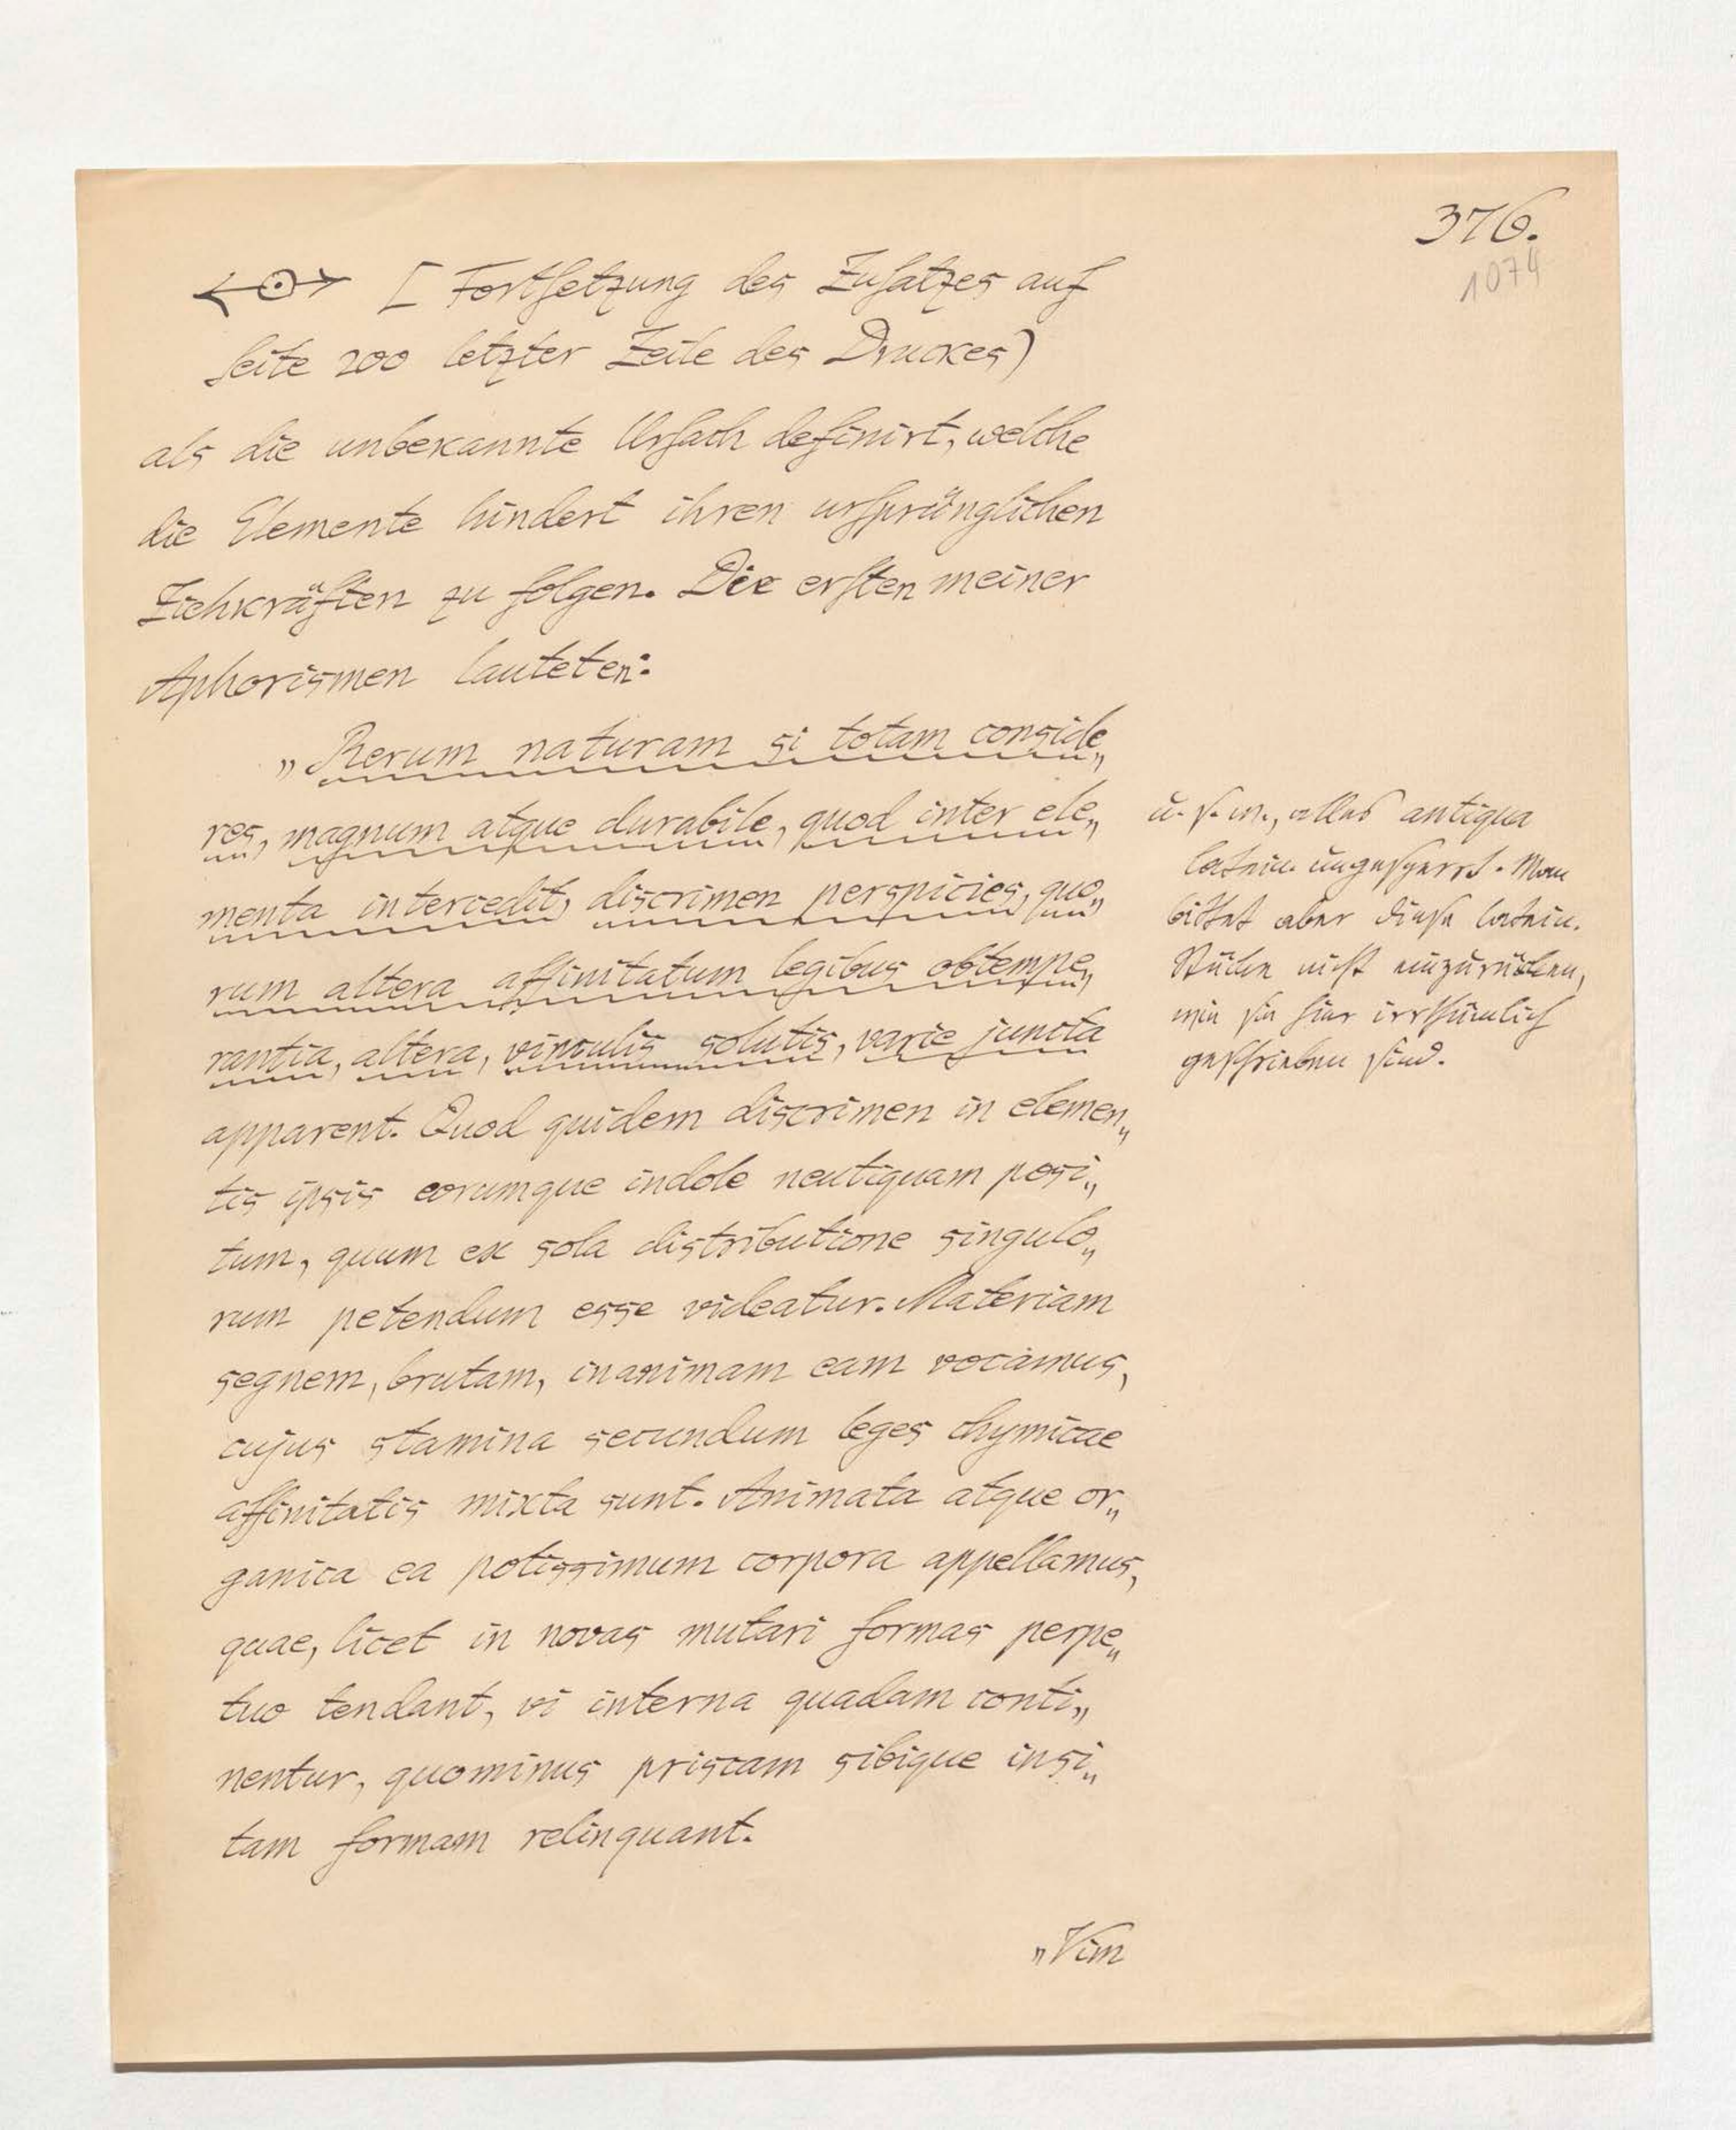 376.
1074
[Fortsetzung des Zusatzes auf
Seite 200 letzter Zeile des Druckes)
als die unbekannte Ursach definirt, welche
die Elemente hindert ihren ursprünglichen
Ziehkräften zu folgen. Die ersten meiner
Aphorismen lauteten:
„Rerum naturam si totam conside„
res, magnum atque durabile, quod inter ele„
menta intercedit, discrimen perspicies, quo„
rum altera affinitatum legibus obtempe„
rantia, altera, vinculis solutis, varie juncta
apparent. Quod quidem discrimen in elemen„
tis ipsis eorumque indole neutiquam posi„
tum, quum ex sola distributione singulo„
rum petendum esse videatur. Materiam
segnem, brutam, inanimam eam vocamus,
cujus stamina secundum leges chymicae
affinitatis mixta sunt. Animata atque or„
ganica ea potissimum corpora appellamus,
quae, licet in novas mutari formas perpe„
tuo tendant, vi interna quadam conti„
nentur, quominus priscam sibique insi„
tam formam relinquant.
„Vim
u. s. w., alles antiqua
latein. ungesperrt. Man
bittet aber diese latein.
Stücke nicht einzurücken,
wie sie hier irrthümlich
geschrieben sind.